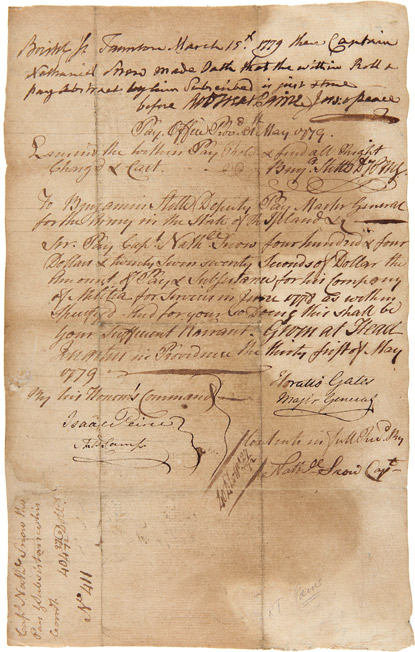 Bristol Ss Taunton March 15th 1779 then Captain
Nathaniel Snow made Oath that the within Roll &
pay abstract by him Subscribed is just & true
before Robt Treat Paine Jus. o peace
Pay Office Provd May 1779.
Examind the within Pay & find all Right
Charg'd & Cast. Benja Stelle D P M G
To Benjamin Stelle Deputy Pay Master General
for the Army in the State of Rd Island &c
Sir. Pay Capt Nathl Snow four hundred & four
Dollars & twenty Seven seventy Seconds of Dollar the
Amount of Pay & Subsistance for his Company
of Militia for Service in 1778 as within
Specifyd and for your So Doing this shall be
Your Sufficient Warrant. Given at Head
Quarters in Providence the thirty first of May
1779
By his Honor's Command
Horatio Gates
Major General
Isaac Peirce
Aid Camp
Contents in full Recd by
Nathll Snow Capt
Capt Nathl Snow his
Pay & Subsistance his
Comy
404 27/72 Dollars
No 411
R T Paine